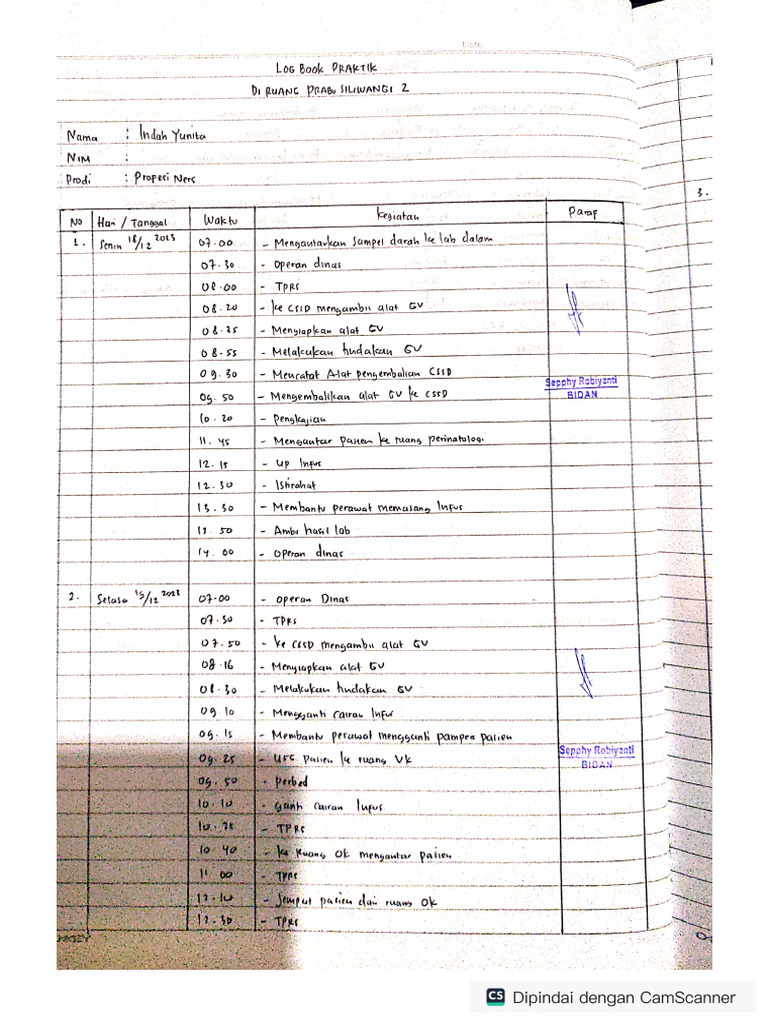 Date
LOG BOOK PRAKTIK
DI RUANG PRABU SILIWANGI 2
Nama : Indah Yunita
NIM :
Prodi : Propesi Ners
3.
NO Hari / Tanggal Waktu Kegiatan Paraf
1. Senin 18/12 2023 07.00 - Mengantarkan sampel darah ke lab dalam
07.30 - Operan dinas
08.00 - TPRS
08.20 - ke CSSD mengambil alat GV
08.35 - Menyiapkan alat GV
08.55 - Melakukan tindakan GV
09.30 - Mencatat Alat pengembalian CSSD
Sepphy Robiyanti
BIDAN
09.50 - Mengembalikan alat GV ke CSSD
10.20 - Pengkajian
11.45 - Mengantar pasien ke ruang perinatologi
12.15 - Up Infus
12.30 - Istirahat
13.30 - Membantu perawat memasang Infus
13.50 - Ambil hasil lab
14.00 - Operan dinas
2. Selasa 19/12 2023 07.00 - Operan Dinas
07.30 - TPRS
07.50 - ke CSSD mengambil alat GV
08.16 - Menyiapkan alat GV
08.30 - Melakukan tindakan GV
09.10 - Mengganti cairan Infus
09.15 - Membantu perawat mengganti pampers pasien
Sepphy Robiyanti
BIDAN
09.25 - pasien ke ruang VK
09.50 - Perbed
10.10 - Ganti cairan Infus
10.25 - TPRS
10.40 - ke Ruang OK mengantar pasien
11.00 - TPRS
12.10 - Jemput pasien dari ruang OK
12.30 - TPRS
CS Dipindai dengan CamScanner